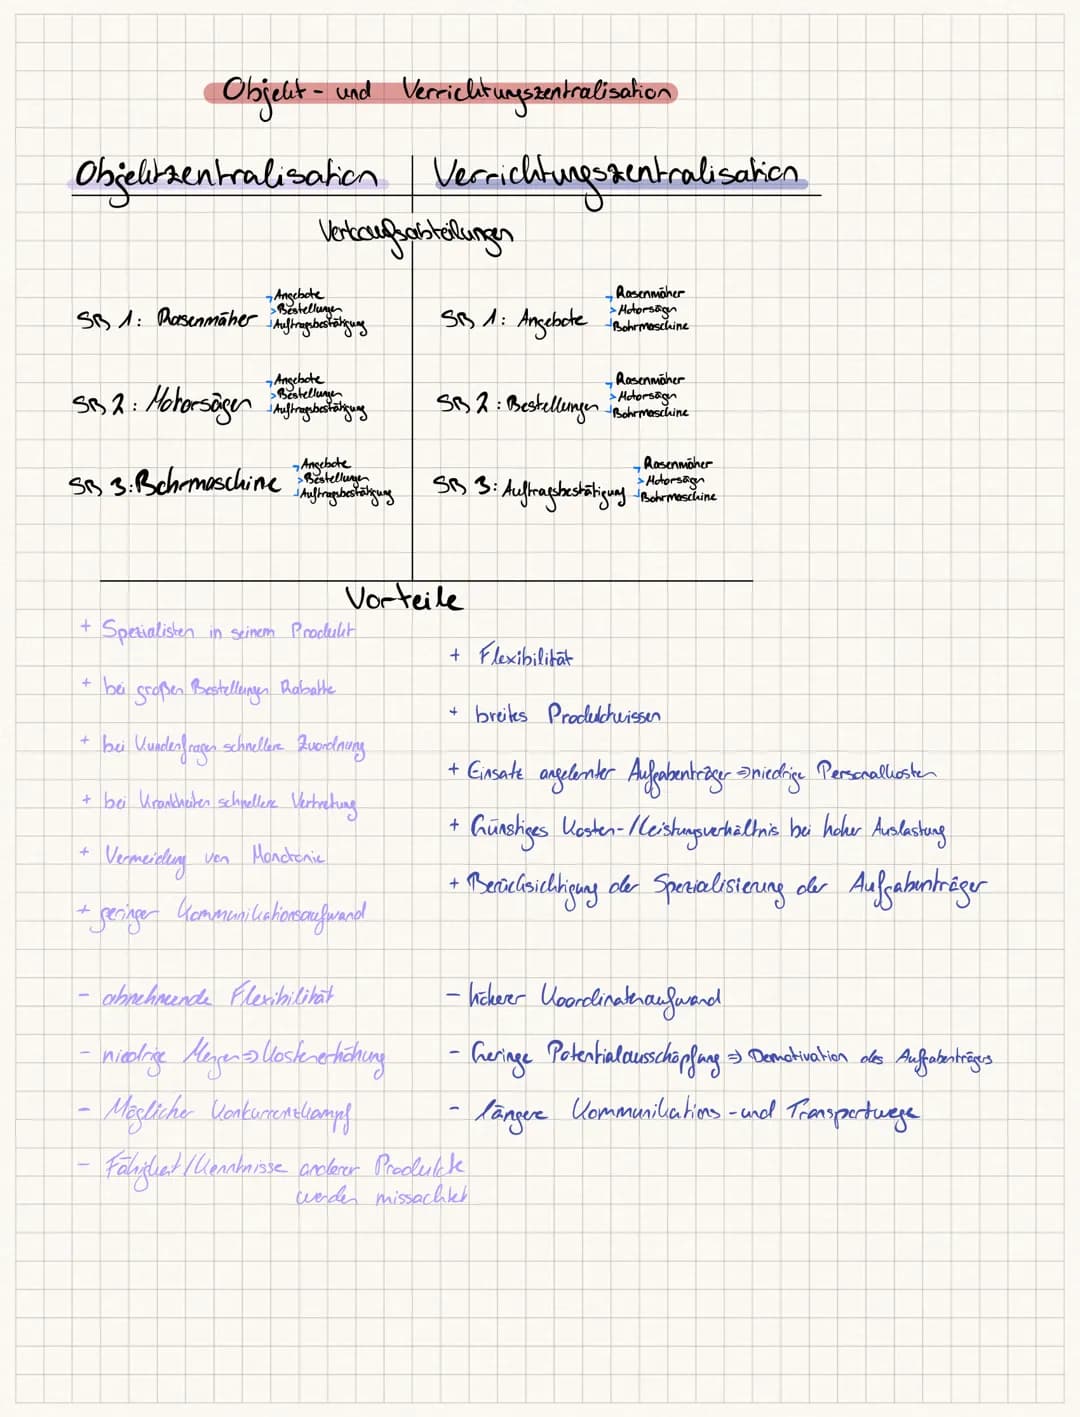 Objekt- und Verrichtungszentralisation
Objektzentralisation
Verrichtungszentralisation
Verkaufsabteilungen
SB 1: Rasenmäher
Angebote
Bestellungen
Auftragsbestätigung
SB 1: Angebote
Rasenmäher
Motorsägn
Bohrmaschine
SB 2: Motorsägen
Angebote
Bestellungen
Auftragsbestätigung
SB 2: Bestellungen
Rasenmäher
Motorsägn
Bohrmaschine
SB 3: Bohrmaschine
Angebote
Bestellungen
Auftragsbestätigung
SB 3: Auftragsbestätigung
Rasenmäher
Motorsägn
Bohrmaschine
Vorteile
+ Spezialisten in seinem Produkt
+ bei großen Bestellungen Rabatte
+ bei Kundenfragen schnellere Zuordnung
+ bei Krankheiten schnellere Vertretung
+ Vermeidung von Monotonie
+ geringer Kommunikationsaufwand
+ Flexibilität
+ breites Produktwissen
+ Einsatz angelernter Aufgabenträger ⇒ niedrige Personalkosten
+ Günstiges Kosten-/Leistungsverhältnis bei hoher Auslastung
+ Berücksichtigung der Spezialisierung der Aufgabenträger
- abnehmende Flexibilität
- niedrige Mengen ⇒ Kostenerhöhung
- Möglicher Konkurrenzkampf
- Fähigkeit/Kenntnisse anderer Produkte
werden missachtet
- höherer Koordinationsaufwand
- Geringe Potentialausschöpfung ⇒ Demotivation des Aufgabenträgers
- längere Kommunikations-und Transportwege